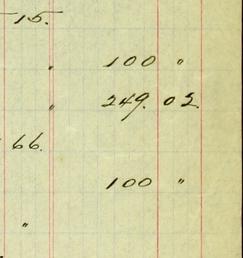 15.
" 100 "
" 249. 02
66.
100 "
"